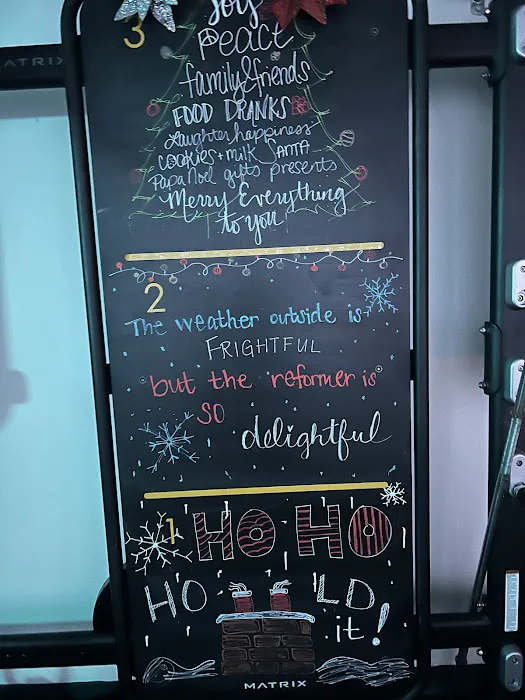 Joy
3
Peace
family & friends
FOOD DRANKS
laughter happiness
cookies + milk SANTA
Papa Noel gifts presents
Merry Everything
to you
MATRIX
2
The weather outside is
FRIGHTFUL
but the reformer is
SO
delightful
1 HO HO
HO LD
it!
MATRIX